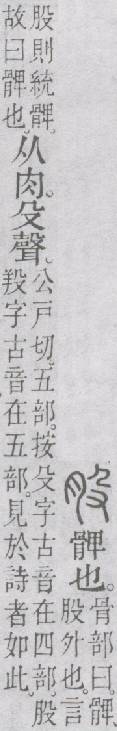 股髀也。
骨部曰。髀、
股外也。言
股則統髀。
故曰髀也。
从肉。殳聲。
公戶切。五部。按殳字古音在四部。股
羖字古音在五部。見於詩者如此。